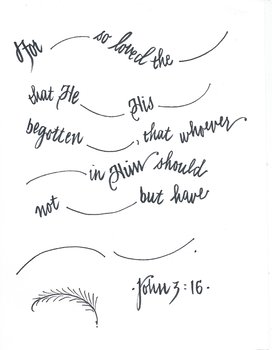 For ___ so loved the ___
that He ___ His ___
begotten ___, that whoever
___ in Him should
not ___ but have
___ ___.
·John 3:16·